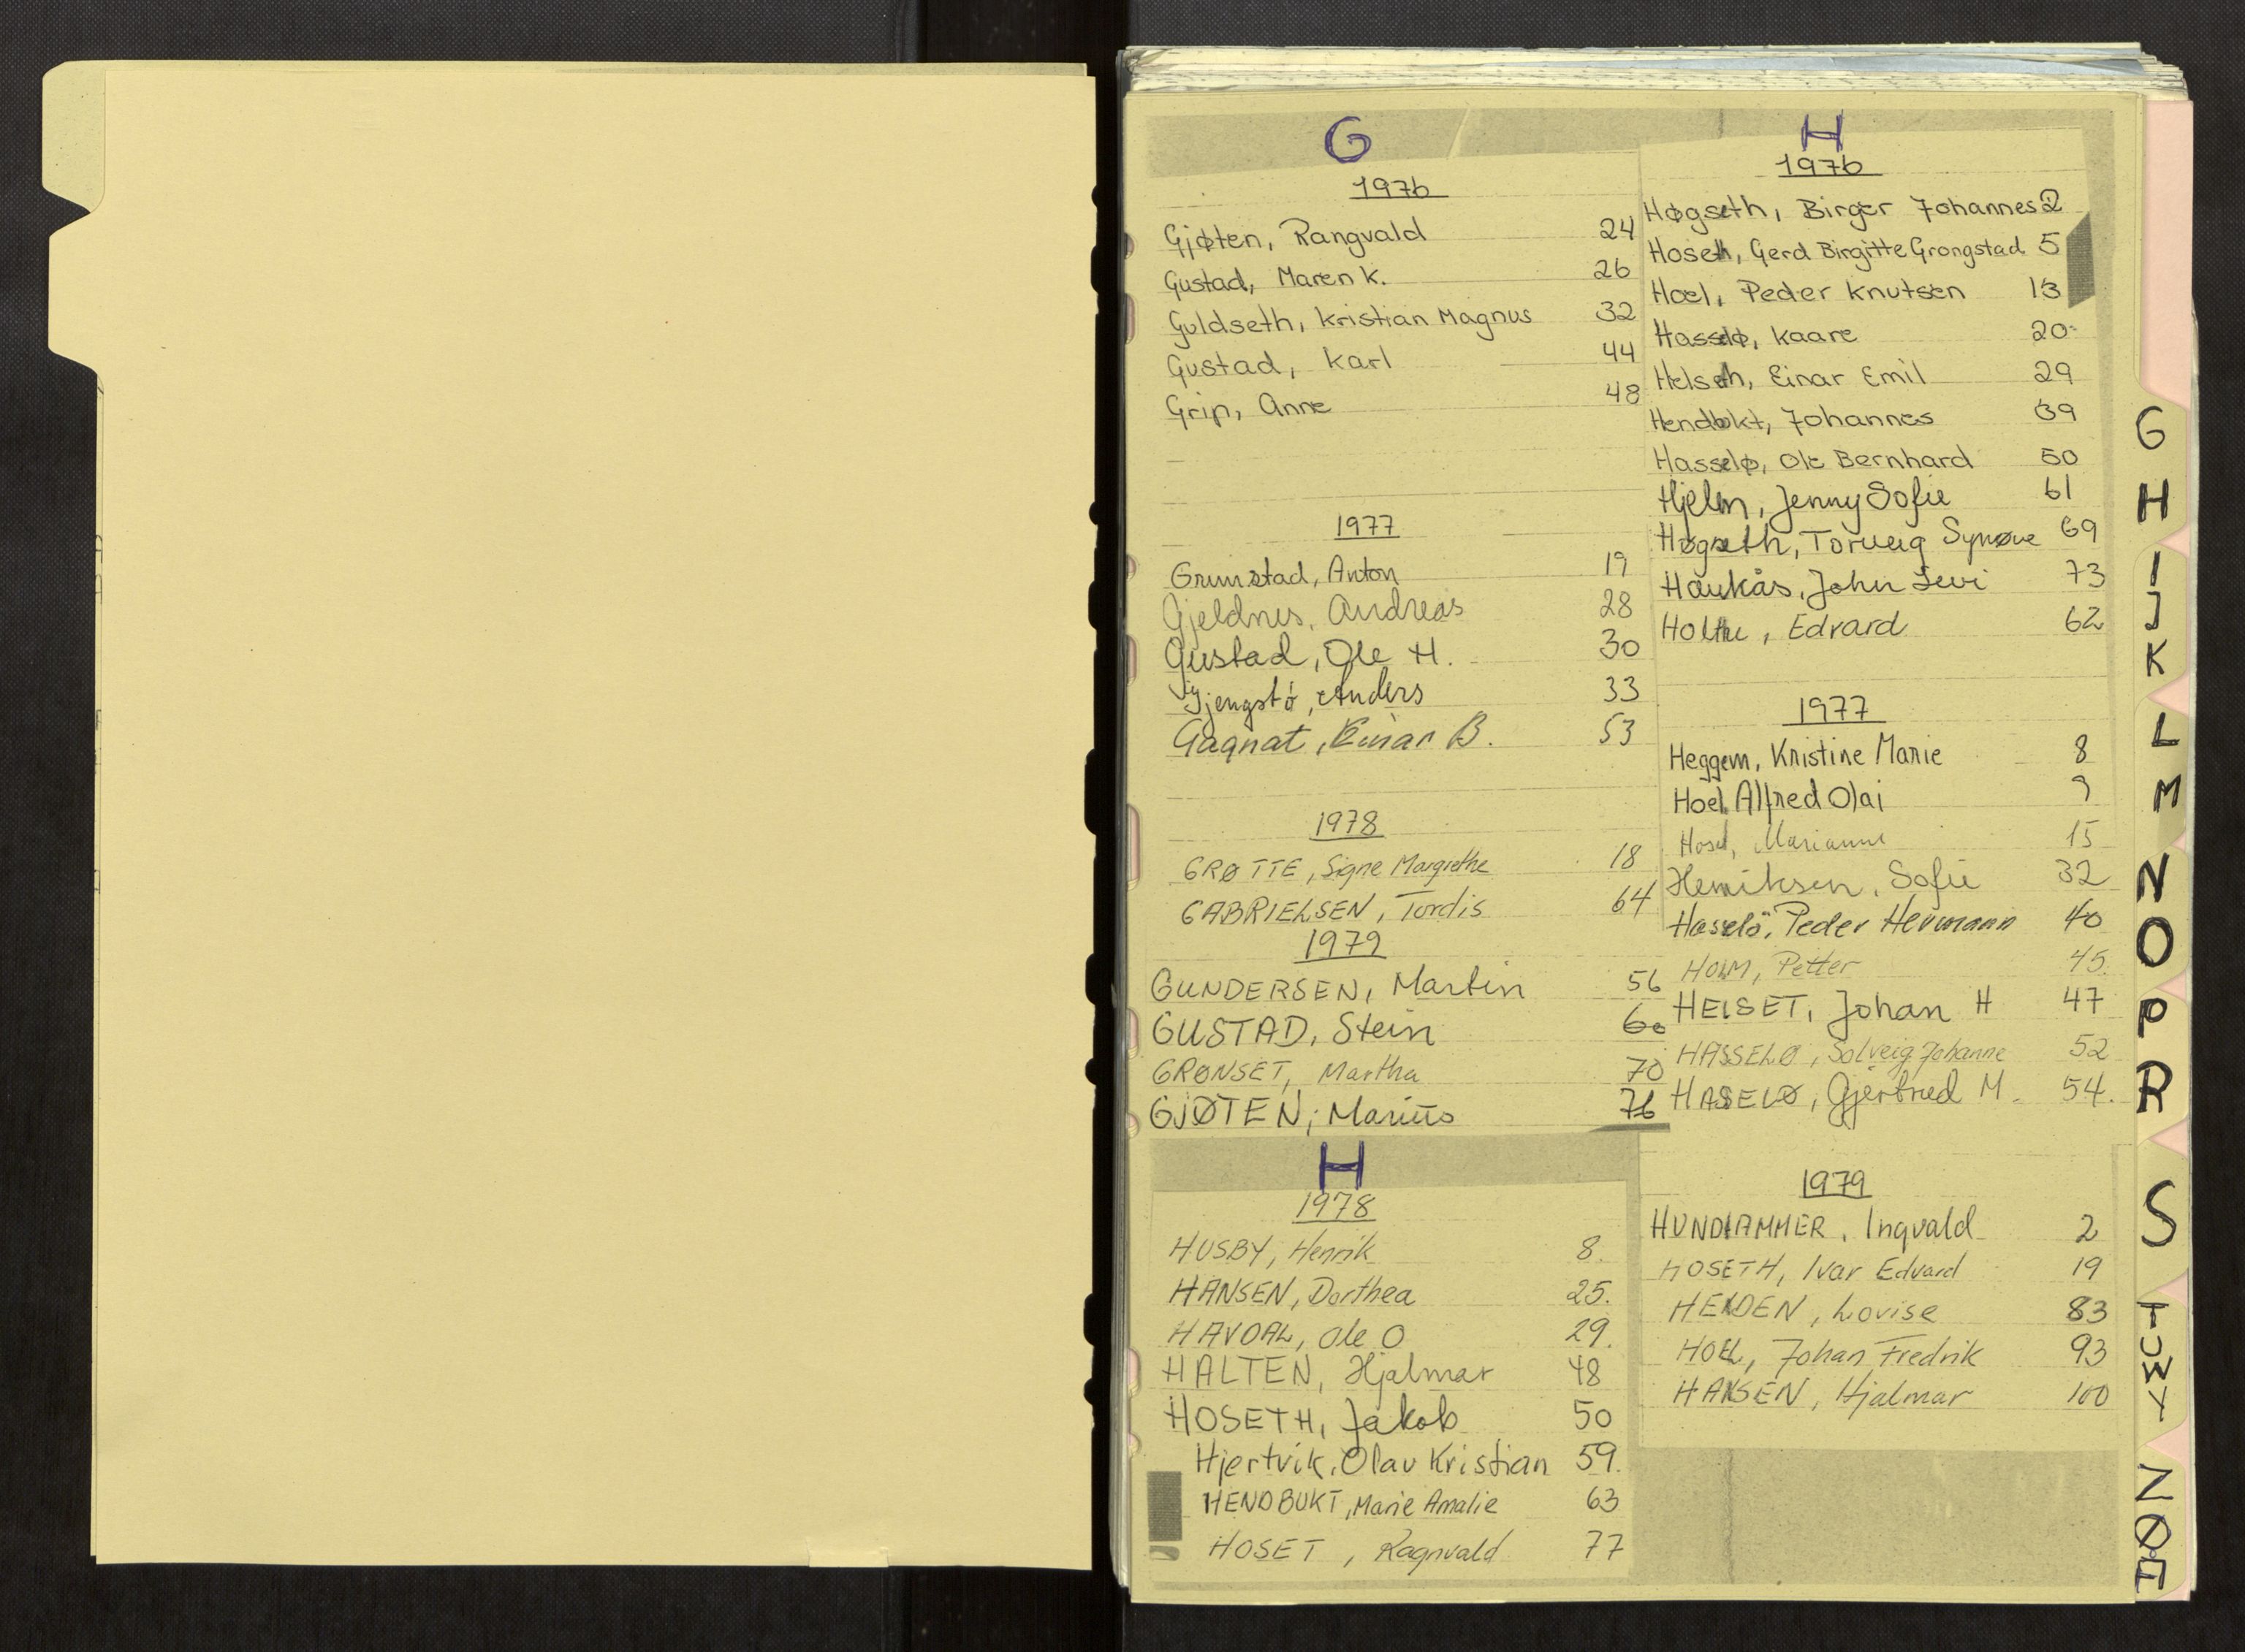 G
1976
Gjøten, Rangvald 24
Gustad, Maren K. 26
Guldseth, Kristian Magnus 32
Gustad, Karl 44
Grip, Anne 48
1977
Grimstad, Anton 19
Gjeldnes, Andreas 28
Gustad, Ole H. 30
Gjengstø, Anders 33
Gagnat, Einar B. 53
1978
GRØTTE, Signe Margrethe 18
GABRIELSEN, Tordis 64
1979
GUNDERSEN, Martin 56
GUSTAD, Stein 60
GRØNSET, Martha 70
GJØTEN, Marius 76
H
1978
HUSBY, Henrik 8.
HANSEN, Dorthea 25.
HAVDAL, Ole O 29.
HALTEN, Hjalmar 48
HOSETH, Jakob 50
Hjertvik, Olav Kristian 59.
HENDBUKT, Marie Amalie 63
HOSET, Ragnvald 77
H
1976
Høgseth, Birger Johannes 2
Hoseth, Gerd Birgitte Grongstad 5
Hoel, Peder Knutsen 13
Hasselø, Kaare 20
Helseth, Einar Emil 29
Hendbukt, Johannes 39
Hasselø, Ole Bernhard 50
Hjelm, Jenny Sofie 61
Høgseth, Torveig Synøve 69
Haukås, John Levi 73
Holthe, Edvard 62
1977
Heggem, Kristine Marie 8
Hoel, Alfred Olai 9
Hosel, Marianne 15
Henriksen, Sofie 32
Hasselö, Peder Hermann 40
HOLM, Petter 45.
HELSET, Johan H 47
HASSELØ, Solveig Johanne 52
HASELØ, Gjertrud M. 54.
1979
HUNDHAMMER, Ingvald 2
HOSETH, Ivar Edvard 19
HELDEN, Lovise 83
HOEL, Johan Fredrik 93
HANSEN, Hjalmar 100
G
H
I
J
K
L
M
N
O
P
R
S
T
U
W
Y
Z
Ø